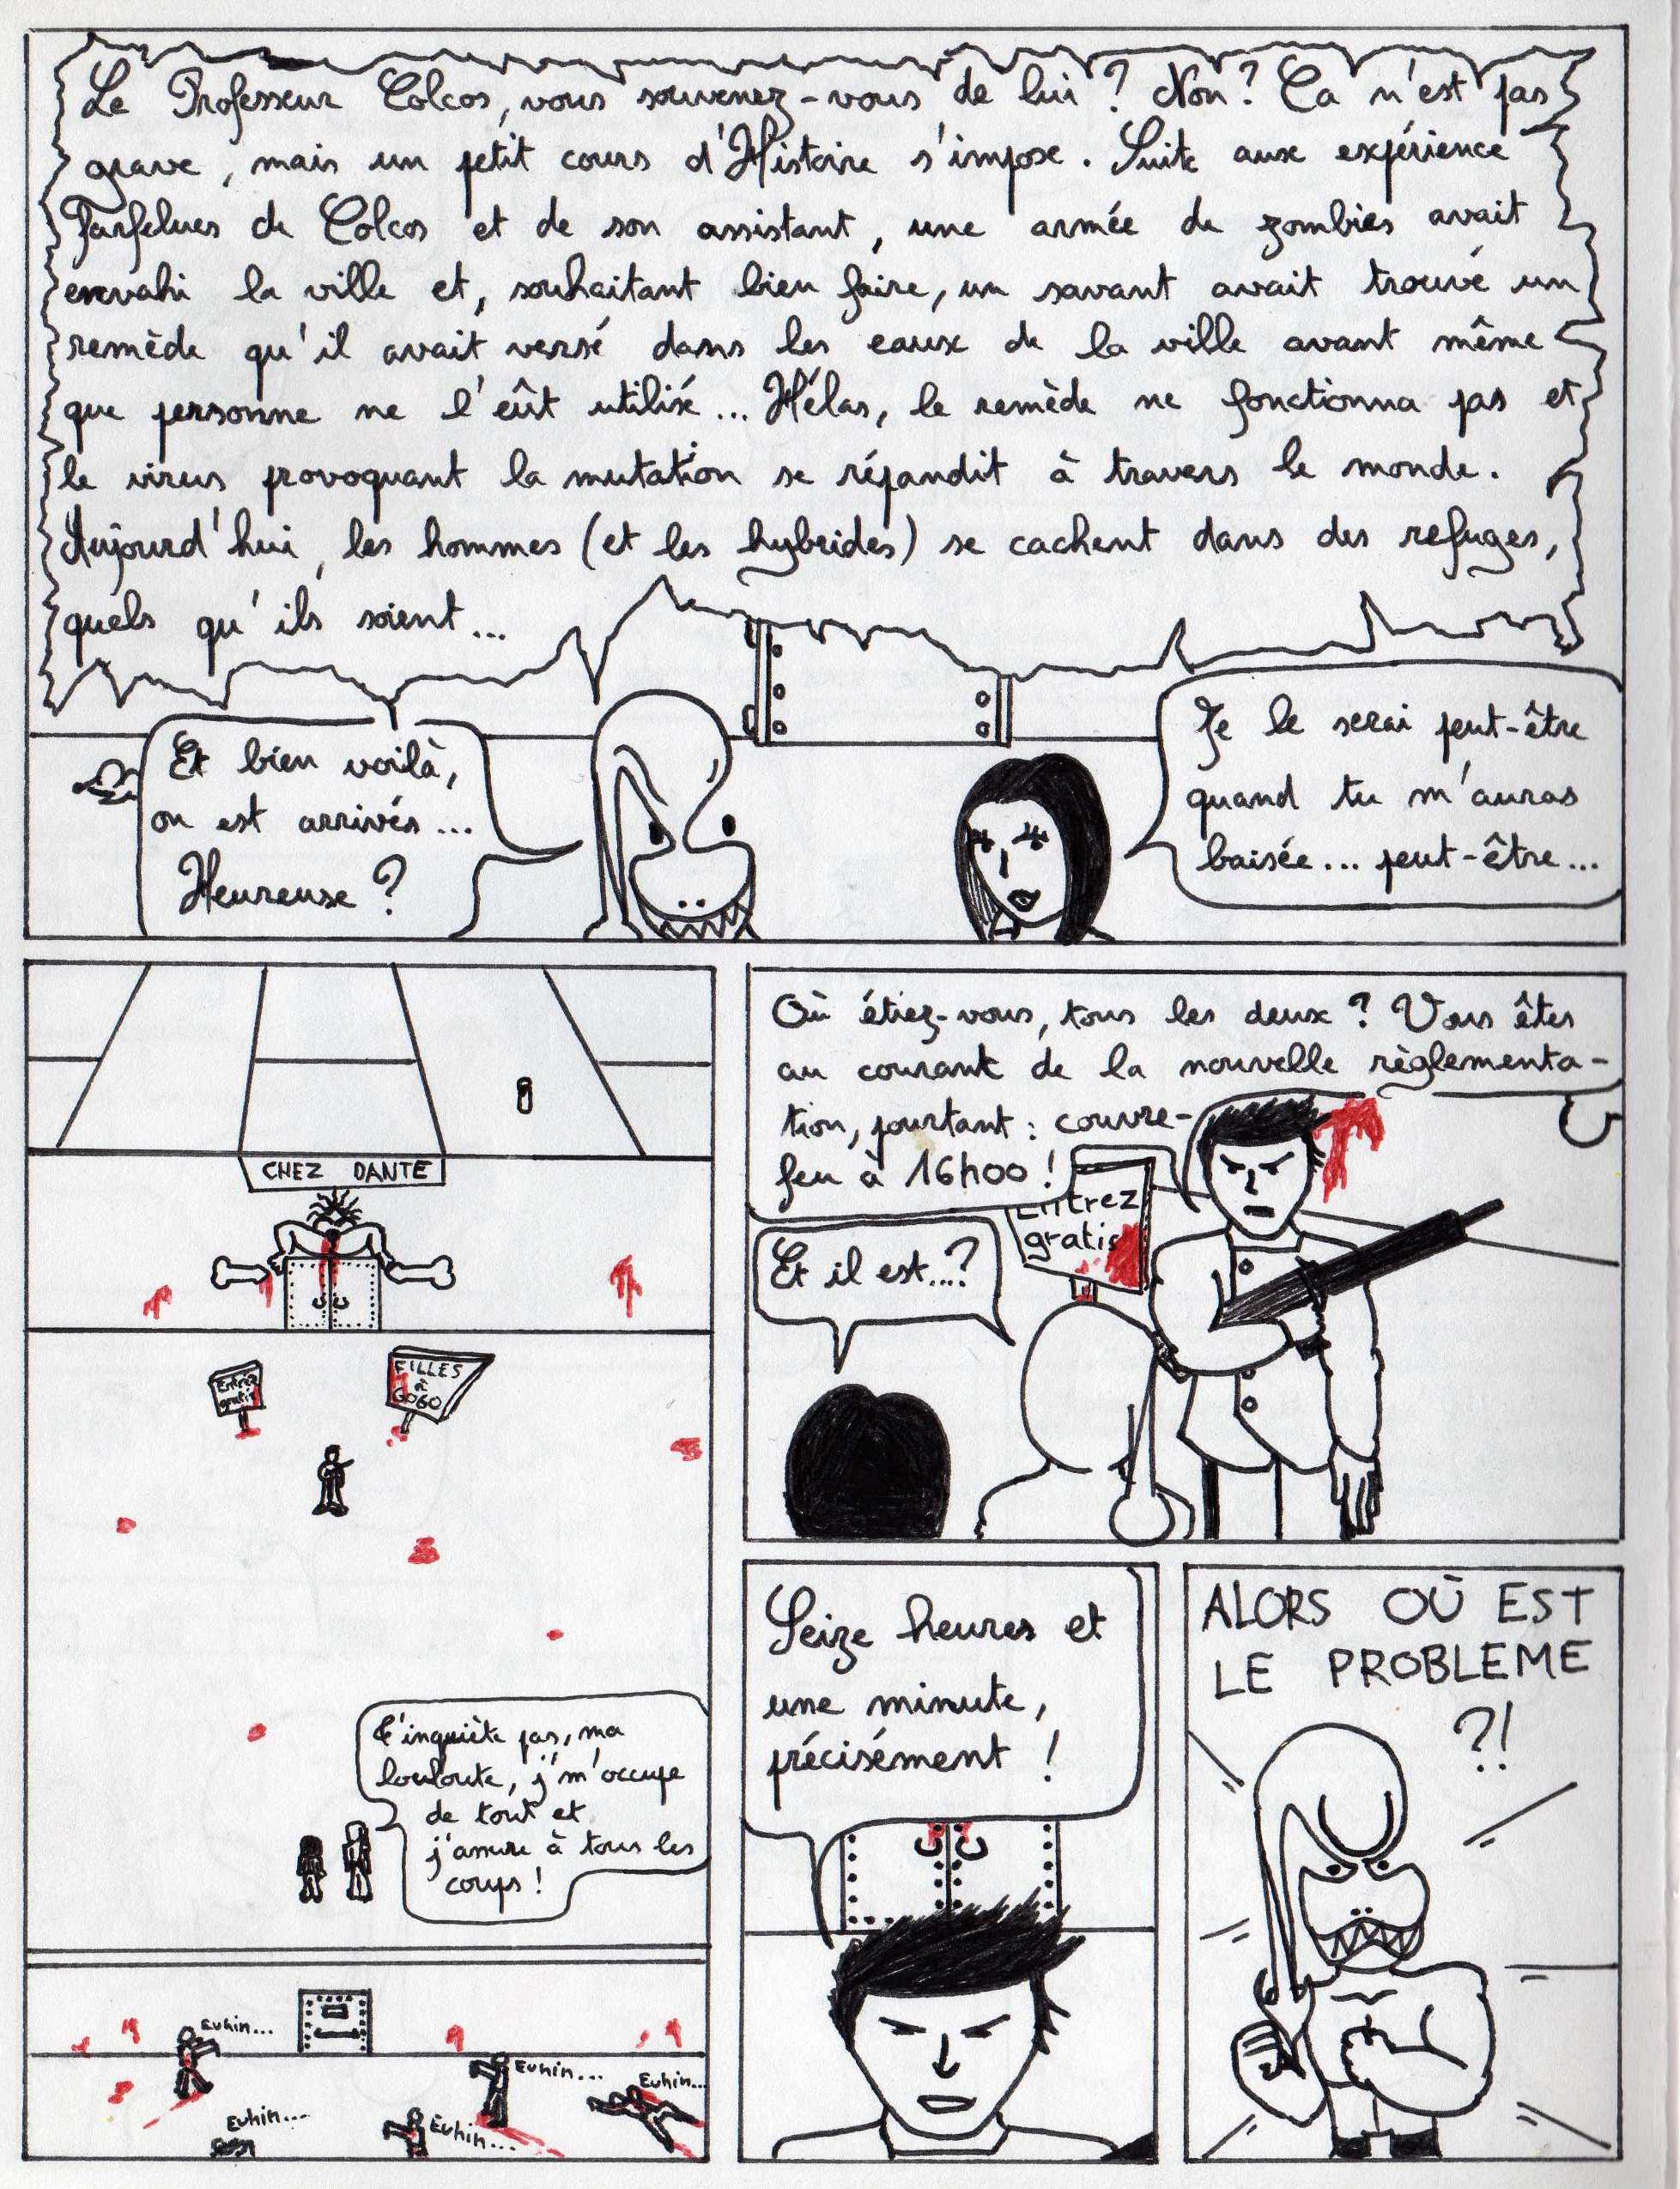 Le Professeur Colcos, vous souvenez-vous de lui ? Non ? Ca n'est pas
grave, mais un petit cours d'Histoire s'impose. Suite aux expérience
farfelues de Colcos et de son assistant, une armée de zombies avait
envahi la ville et, souhaitant bien faire, un savant avait trouvé un
remède qu'il avait versé dans les eaux de la ville avant même
que personne ne l'eût utilisé... Hélas, le remède ne fonctionna pas et
le virus provoquant la mutation se répandit à travers le monde.
Aujourd'hui, les hommes (et les hybrides) se cachent dans des refuges,
quels qu'ils soient...
Et bien voilà,
on est arrivés...
Heureuse ?
Je le serai peut-être
quand tu m'auras
baisée... peut-être...
CHEZ DANTE
Entrez
gratis
FILLES
à
GOGO
T'inquiète pas, ma
louloute, j'm'occupe
de tout et
j'assure à tous les
coups !
Euhin...
Euhin...
Euhin...
Euhin...
Euhin...
Où étiez-vous, tous les deux ? Vous êtes
au courant de la nouvelle règlementa-
tion, pourtant : couvre-
feu à 16h00 !
Entrez
gratis
Et il est...?
Seize heures et
une minute,
précisément !
ALORS OÙ EST
LE PROBLEME
?!